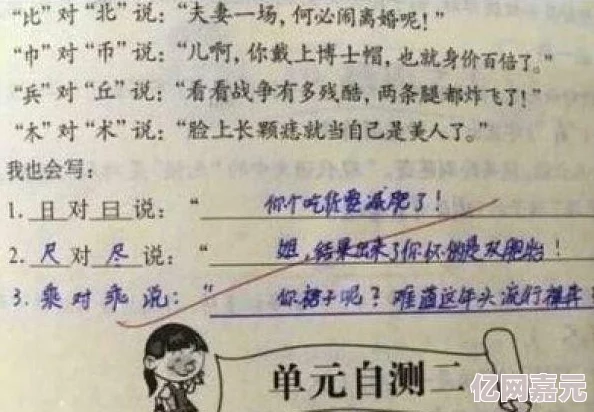 “比”对“北”说：“夫妻一场，何必闹离婚呢！”
“巾”对“币”说：“儿啊，你戴上博士帽，也就身价百倍了。”
“兵”对“丘”说：“看看战争有多残酷，两条腿都炸飞了！”
“木”对“术”说：“脸上长颗痣就当自己是美人了。”
我也会写：
1. 日对曰说：“你个吃货要减肥了！
2. 尺对尽说：“姐，结果出来了你怀的是双胞胎！
3. 乘对乖说：“你裙子呢？难道这年头流行裸奔？
单元自测二
亿网嘉元